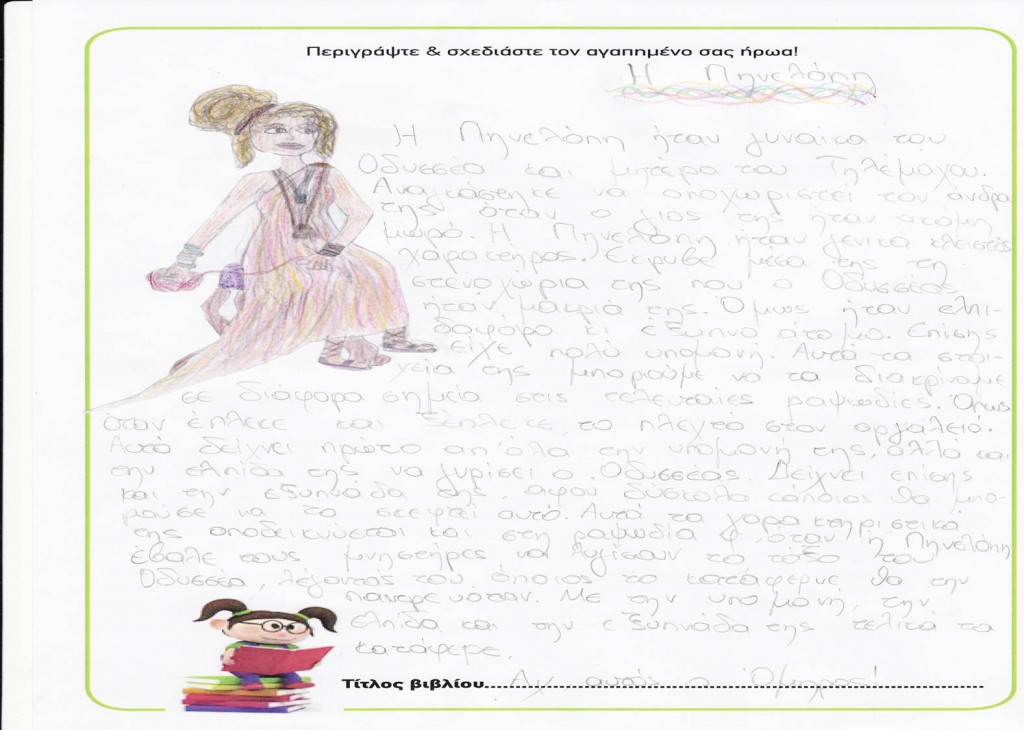 Περιγράψτε & σχεδιάστε τον αγαπημένο σας ήρωα!
Η Πηνελόπη
Η Πηνελόπη ήταν γυναίκα του
Οδυσσέα και μητέρα του Τηλέμαχου.
Αναγκάστηκε να αποχωριστεί τον άνδρα
της όταν ο γιος της ήταν ακόμη
μωρό. Η Πηνελόπη ήταν γενικά κλειστός
χαρακτήρας. Έκρυβε μέσα της τη
στενοχώρια της που ο Οδυσσέας
ήταν μακριά της. Όμως ήταν ελπι-
δοφόρο κι έξυπνο άτομο. Επίσης
είχε πολύ υπομονή. Αυτά τα στοι-
χεία της μπορούμε να τα διακρίνουμε
σε διάφορα σημεία στις τελευταίες ραψωδίες. Όπως
όταν έπλεκε και ξέπλεκε το πλεχτό στον αργαλειό.
Αυτό δείχνει πρώτα απ' όλα την υπομονή της, αλλά και
την ελπίδα της να γυρίσει ο Οδυσσέας. Δείχνει επίσης
και την εξυπνάδα της, αφού δύσκολα κάποιος θα μπο-
ρούσε να το σκεφτεί αυτό. Αυτά τα χαρακτηριστικά
της αποδεικνύονται και στη ραψωδία φ, όταν η Πηνελόπη
έβαλε τους μνηστήρες να λυγίσουν το τόξο του
Οδυσσέα, λέγοντας του όποιος το κατάφερνε θα την
παντρευόταν. Με την υπομονή, την
ελπίδα και την εξυπνάδα της τελικά τα
κατάφερε.
Τίτλος βιβλίου Αχ, αυτός ο Όμηρος!